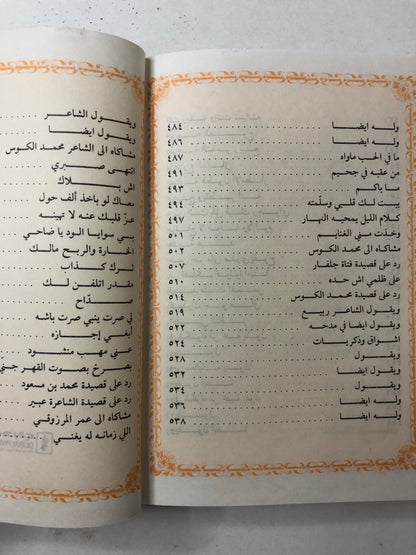 وله ايضا ٤٨٤
وله ايضا ٤٨٦
ما في الحب ماواه ٤٨٧
من عقبه في جحيم ٤٩١
ما باكم ٤٩٣
يبت لك قلبي وسلمته ٤٩٤
كلام الليل يمحيه النهار ٤٩٧
وخذت مني الغنايم ٥٠١
مشاكاه الى محمد الكوس ٥٠٢
رد على قصيدة فتاة جلفار ٥٠٧
على ظلمي اش حده ٥١٠
رد على قصيدة محمد الكوس ٥١٤
ويقول الشاعر ربيع ٥١٩
ويقول ايضا في مدحه ٥٢٠
اشواق وذكريات ٥٢٤
ويقول ٥٢٨
وله ايضا ٥٣٢
ويقول ٥٣٤
وله ايضا ٥٣٦
وله ايضا ٥٣٨
ويقول الشاعر
ويقول ايضا
مشاكاه الى الشاعر محمد الكوس
انتهى صبري
اش بلاك
معاك لو باخذ ألف حول
عز قلبك عنه لا تهينه
بي سوايا الود يا ضاحي
الخسارة والربح مالك
ترك كذاب
مقدر اتلفن لك
صداح
في صرت بنبي صرت باشه
أبغي إجازه
عني مهب منشود
بصرخ بصوت القهر جني
رد على قصيدة محمد بن مسعود
رد على قصيدة الشاعرة عبير
مشاكاه الى عمر المرزوقي
اللي زمانه له يغني